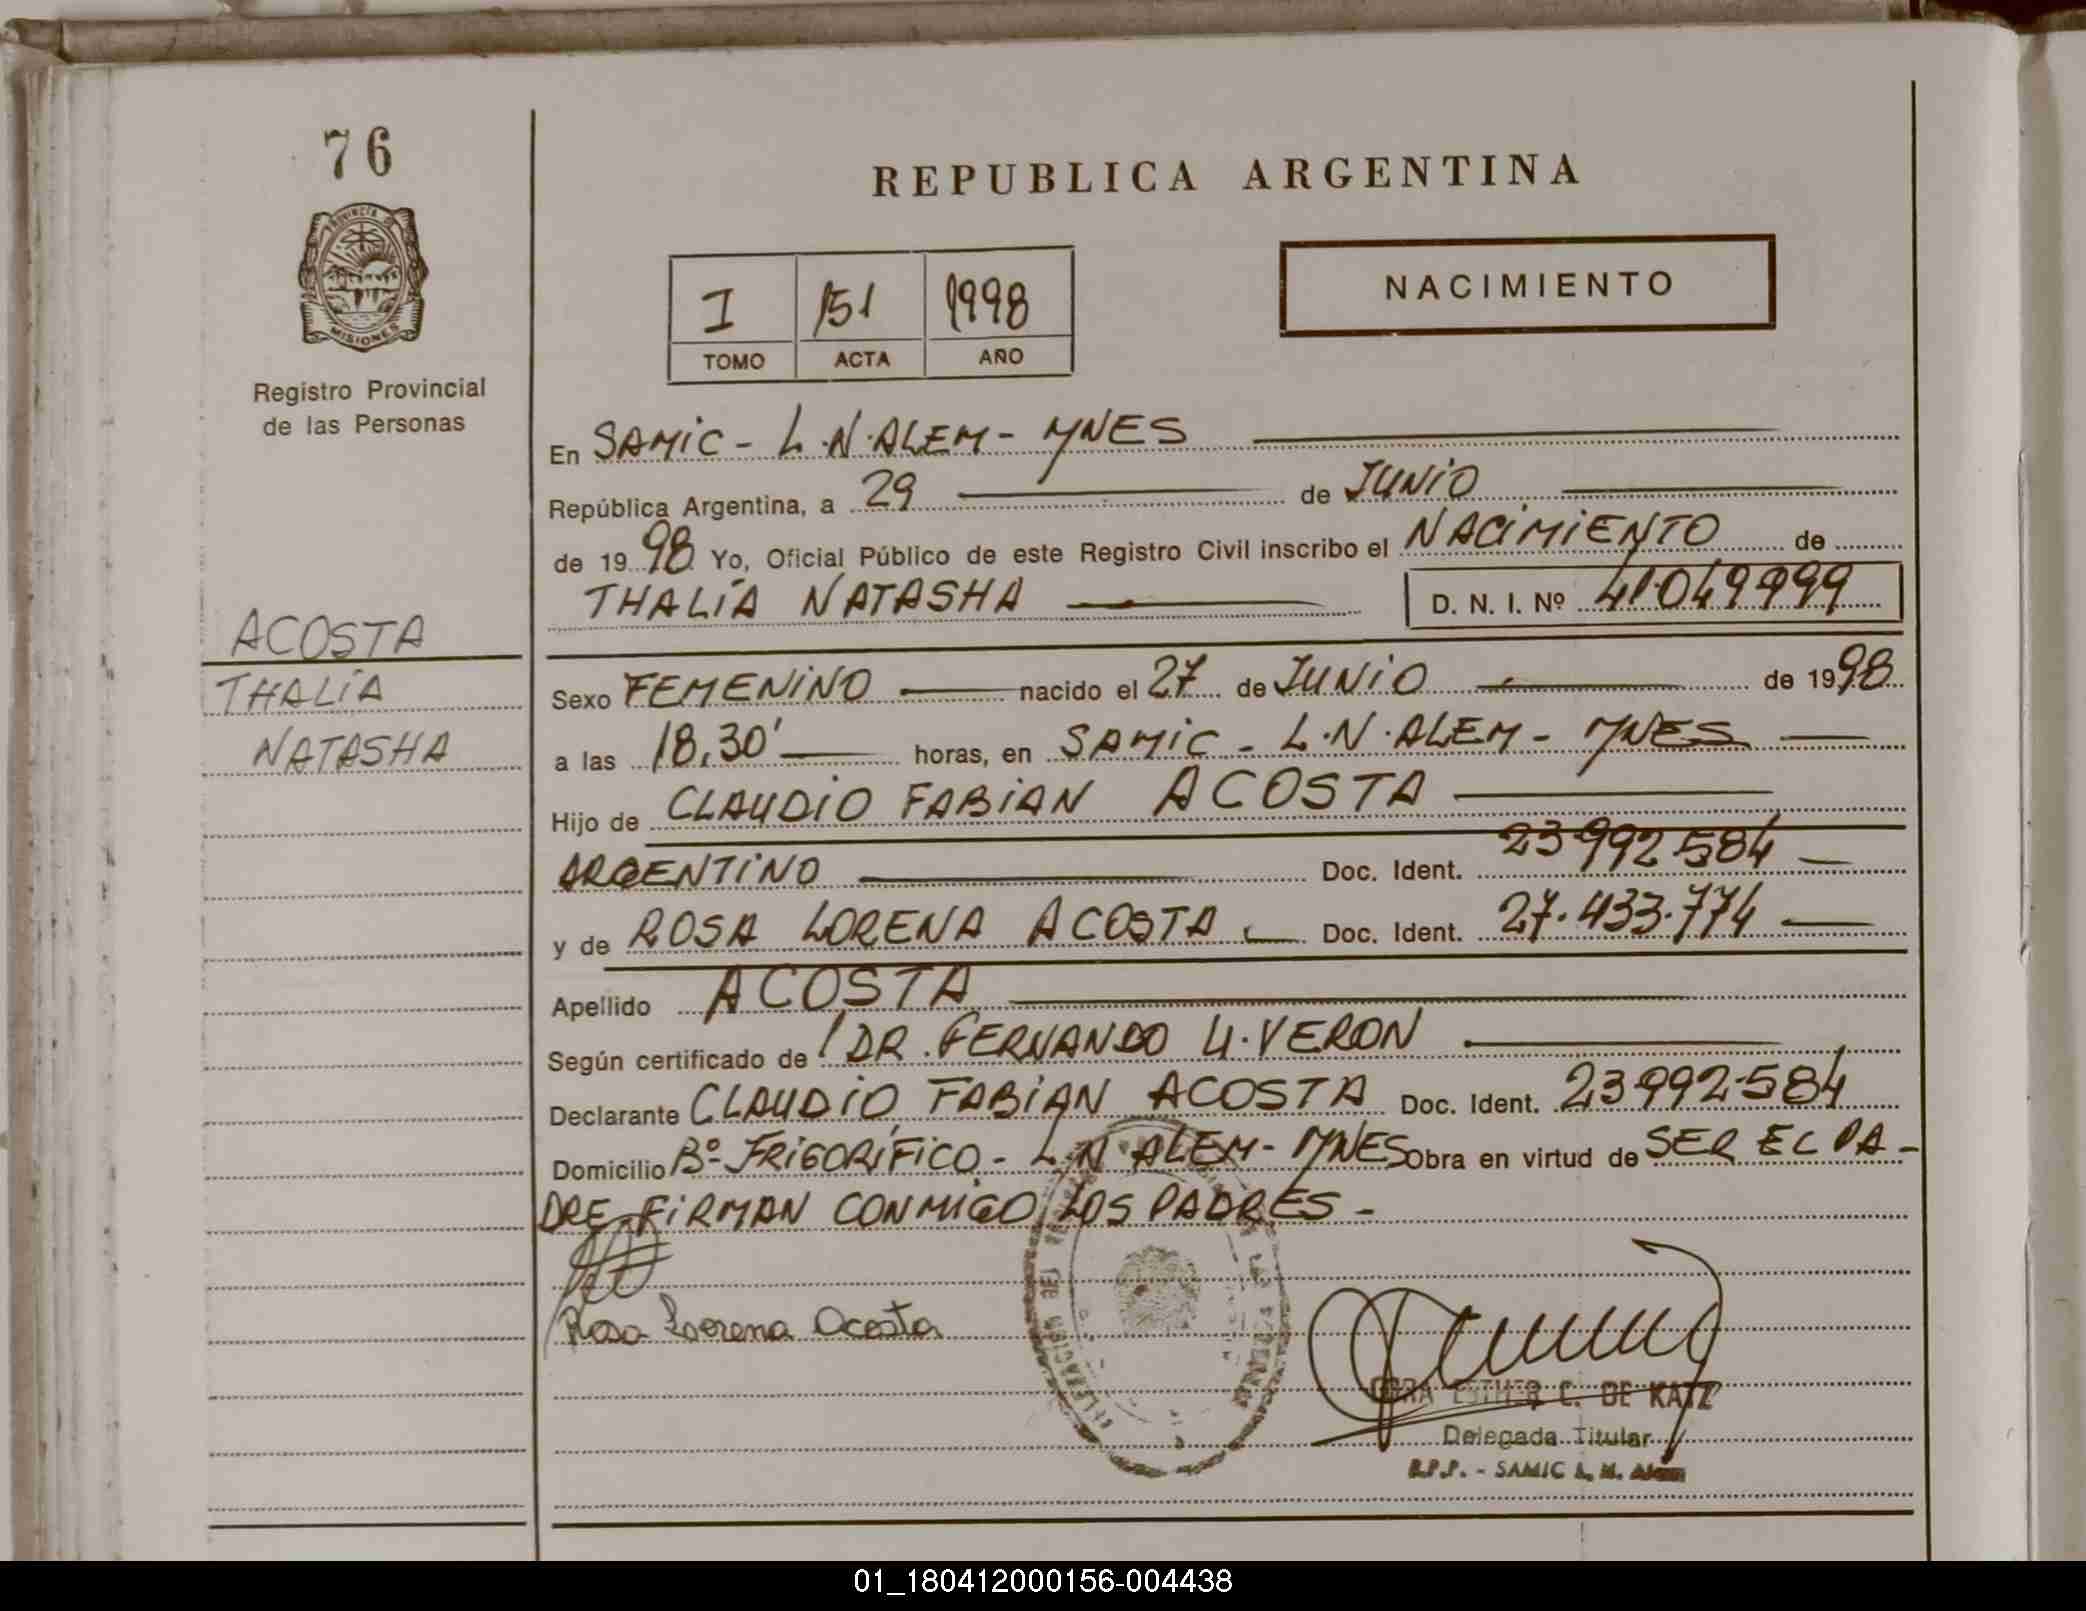 76
REPUBLICA ARGENTINA
PROVINCIA DE
MISIONES
Registro Provincial
de las Personas
I 151 1998
TOMO ACTA AÑO
NACIMIENTO
En SAMIC - L.N.ALEM - MNES
República Argentina, a 29 de JUNIO
de 1998 Yo, Oficial Público de este Registro Civil inscribo el NACIMIENTO de
THALÍA NATASHA D. N. I. Nº 41.049.999
ACOSTA
THALÍA
NATASHA
Sexo FEMENINO nacido el 27 de JUNIO de 1998
a las 18,30' horas, en SAMIC - L.N.ALEM - MNES
Hijo de CLAUDIO FABIAN ACOSTA
ARGENTINO Doc. Ident. 23.992.584
y de ROSA LORENA ACOSTA Doc. Ident. 27.433.774
Apellido ACOSTA
Según certificado de DR. FERNANDO U. VERON
Declarante CLAUDIO FABIAN ACOSTA Doc. Ident. 23.992.584
Domicilio Bº FRIGORÍFICO - L.N ALEM - MNES Obra en virtud de SER EL PA-
DRE. FIRMAN CONMIGO LOS PADRES -
Rosa Lorena Acosta
ESTHER C. DE KATZ
Delegada Titular
R.P.P. - SAMIC L. N. Alem
01_180412000156-004438